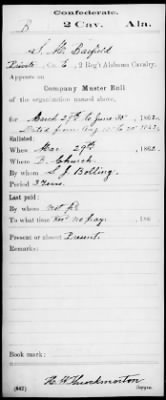 Confederate.
B 2 Cav. Ala.
S. M. Barfield
Private, Co. E, 2 Reg't Alabama Cavalry.
Appears on
Company Muster Roll
of the organization named above,
for March 29th to June 30", 1862.
Dated from Aug 15 to 20 1862.
Enlisted:
When Mar 29th, 1862.
Where B. Church.
By whom S. J. Bolling.
Period 3 Years.
Last paid:
By whom not pd
To what time no pay, 186
Present or absent Present.
Remarks:
Book mark:
(642) N. W. Throckmorton
Copyist.